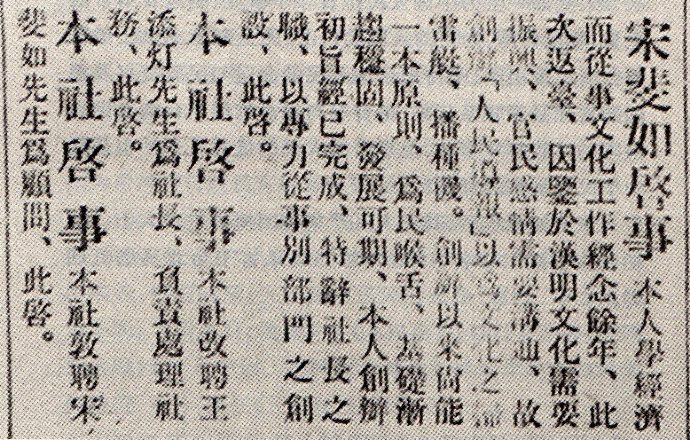 宋斐如啓事 本人學經濟
而從事文化工作經念餘年、此
次返臺、因鑒於漢明文化需要
振興、官民感情需要溝通、故
創辦「人民導報」以爲文化之掃
雷艇、播種機。創辦以來尙能
一本原則、爲民喉舌、基礎漸
趨穩固、發展可期、本人創辦
初旨經已完成、特辭社長之
職、以專力從事別部門之創
設、此啓。
本社啓事 本社改聘王
添灯先生爲社長、負責處理社
務、此啓。
本社啓事 本社敦聘宋
斐如先生爲顧問、此啓。